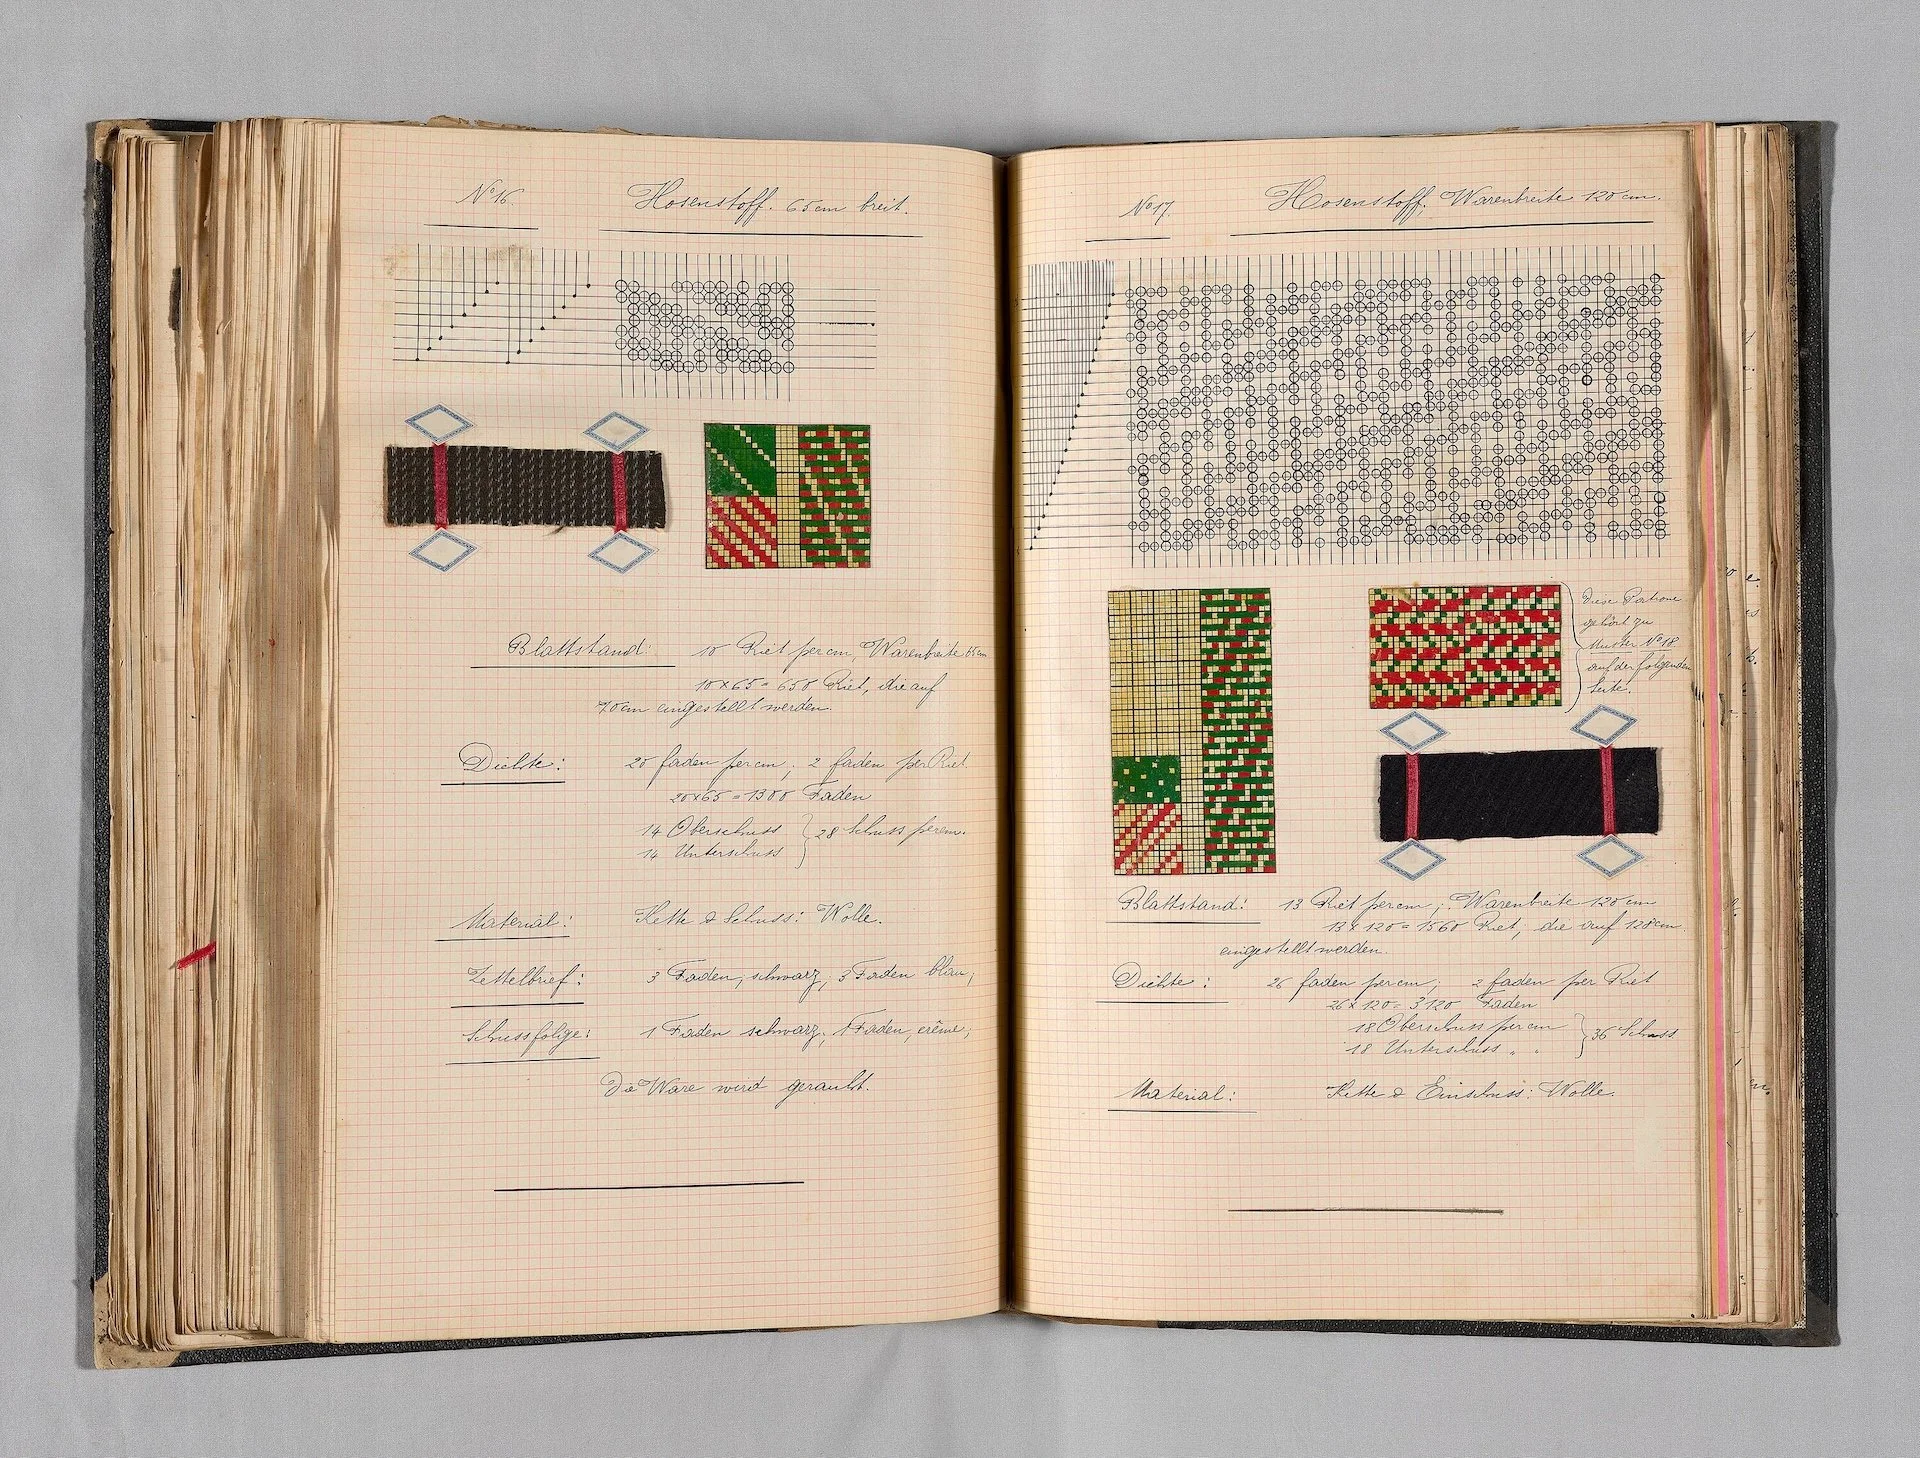 No 16. Hosenstoff. 65 cm breit.
Blattstand: 10 Riet per cm, Warenbreite 65 cm
10 x 65 = 650 Riet, die auf
70 cm eingestellt werden.
Dichte: 20 Faden per cm; 2 Faden per Riet.
20 x 65 = 1300 Faden
14 Oberschuss } 28 Schuss per cm.
14 Unterschuss
Material: Kette & Schuss: Wolle.
Zettelbrief: 3 Faden, schwarz, 3 Faden blau;
Schussfolge: 1 Faden schwarz, 1 Faden, crême;
Die Ware wird gerauht.
No 17. Hosenstoff, Warenbreite 120 cm.
Diese Patrone
gehört zu
Muster No 18.
auf der folgenden
Seite.
Blattstand: 13 Riet per cm; Warenbreite 120 cm
13 x 120 = 1560 Riet, die auf 128 cm
eingestellt werden.
Dichte: 26 Faden per cm; 2 Faden per Riet
26 x 120 = 3120 Faden
18 Oberschuss per cm } 36 Schuss
18 Unterschuss " "
Material: Kette & Einschuss: Wolle.